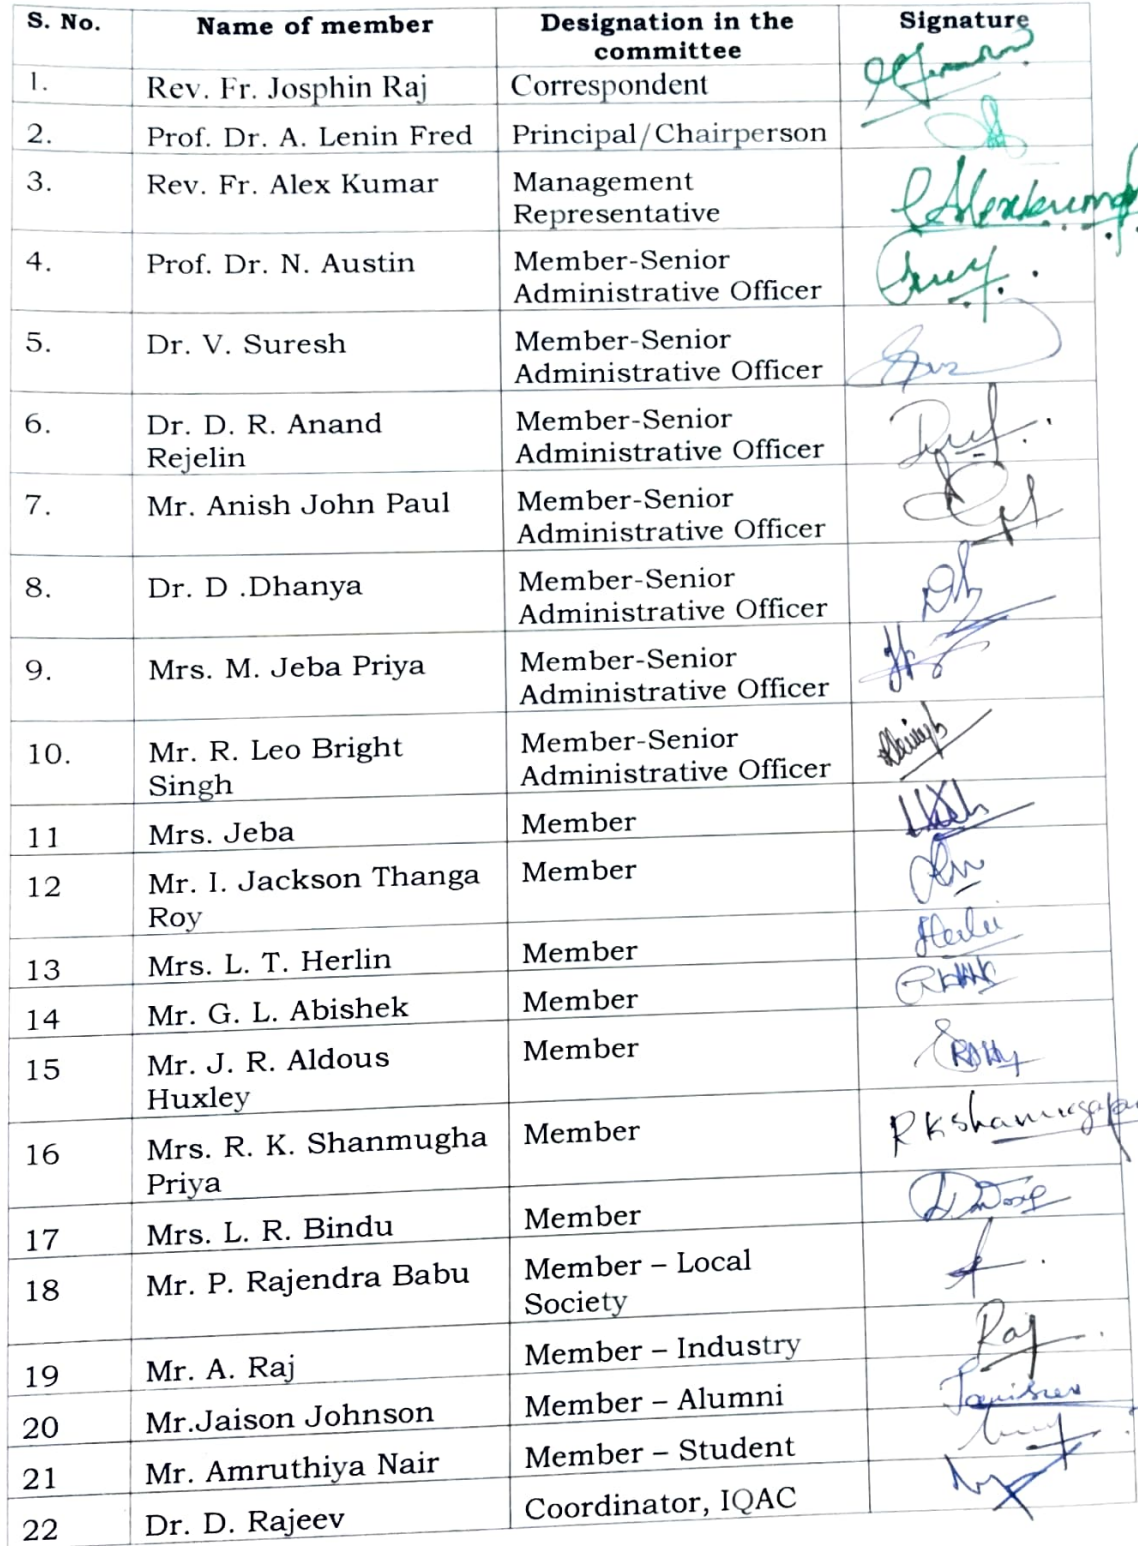 S. No. Name of member Designation in the Signature
committee
1. Rev. Fr. Josphin Raj Correspondent
2. Prof. Dr. A. Lenin Fred Principal/Chairperson
3. Rev. Fr. Alex Kumar Management
Representative
4. Prof. Dr. N. Austin Member-Senior
Administrative Officer
5. Dr. V. Suresh Member-Senior
Administrative Officer
6. Dr. D. R. Anand Member-Senior
Rejelin Administrative Officer
7. Mr. Anish John Paul Member-Senior
Administrative Officer
8. Dr. D .Dhanya Member-Senior
Administrative Officer
9. Mrs. M. Jeba Priya Member-Senior
Administrative Officer
10. Mr. R. Leo Bright Member-Senior
Singh Administrative Officer
11 Mrs. Jeba Member
12 Mr. I. Jackson Thanga Member
Roy
13 Mrs. L. T. Herlin Member
14 Mr. G. L. Abishek Member
15 Mr. J. R. Aldous Member
Huxley
16 Mrs. R. K. Shanmugha Member
Priya
17 Mrs. L. R. Bindu Member
18 Mr. P. Rajendra Babu Member – Local
Society
19 Mr. A. Raj Member – Industry Raj
20 Mr.Jaison Johnson Member – Alumni
21 Mr. Amruthiya Nair Member – Student
22 Dr. D. Rajeev Coordinator, IQAC